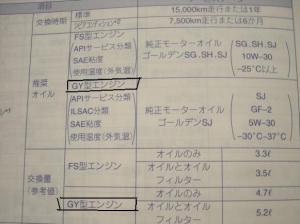 項目
交換時期
標準
シビアコンディション*
15,000km走行または1年
7,500km走行または6か月
推奨
オイル
FS型エンジン
APIサービス分類
SAE粘度
使用温度(外気温)
純正モーターオイル
ゴールデンSG.SH.SJ
SG.SH.SJ
10W-30
-25℃以上
GY型エンジン
APIサービス分類
ILSAC分類
SAE粘度
使用温度(外気温)
純正モーターオイル
ゴールデンSJ
SJ
GF-2
5W-30
-30℃~37℃
交換量
(参考値)
FS型エンジン
オイルのみ
3.3ℓ
オイルとオイル
フィルター
3.5ℓ
GY型エンジン
オイルのみ
4.7ℓ
オイルとオイル
フィルター
5.2ℓ